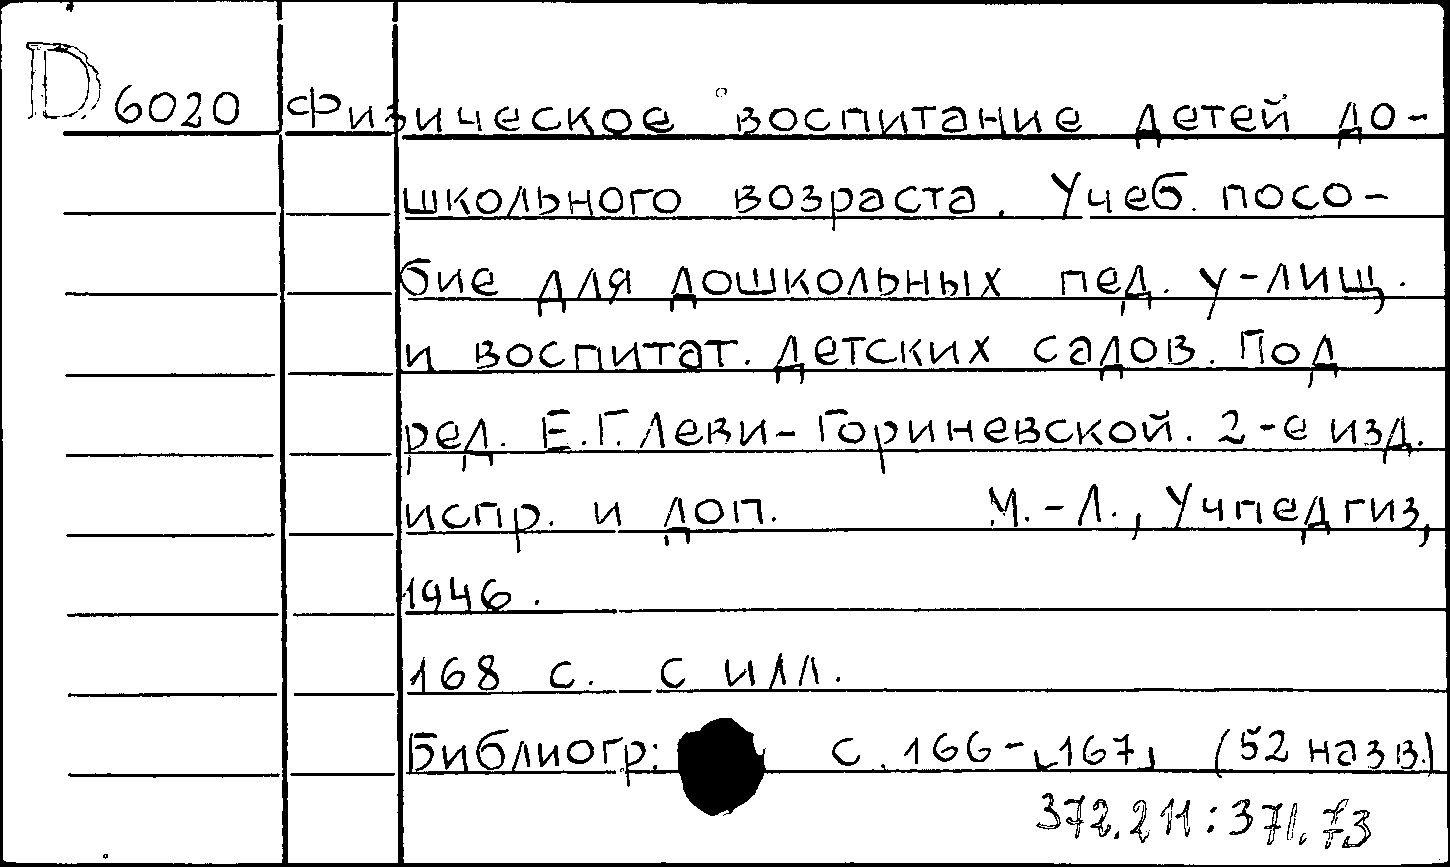 D 6020 Физическое воспитание детей до-
школьного возраста. Учеб. посо-
бие для дошкольных пед. у-лищ.
и воспитат. детских садов. Под
ред. Е.Г. Леви-Гориневской. 2-е изд.
испр. и доп. М.-Л., Учпедгиз,
1946.
168 с. с илл.
Библиогр: с. 166-[167] (52 назв.)
372.211:371.73